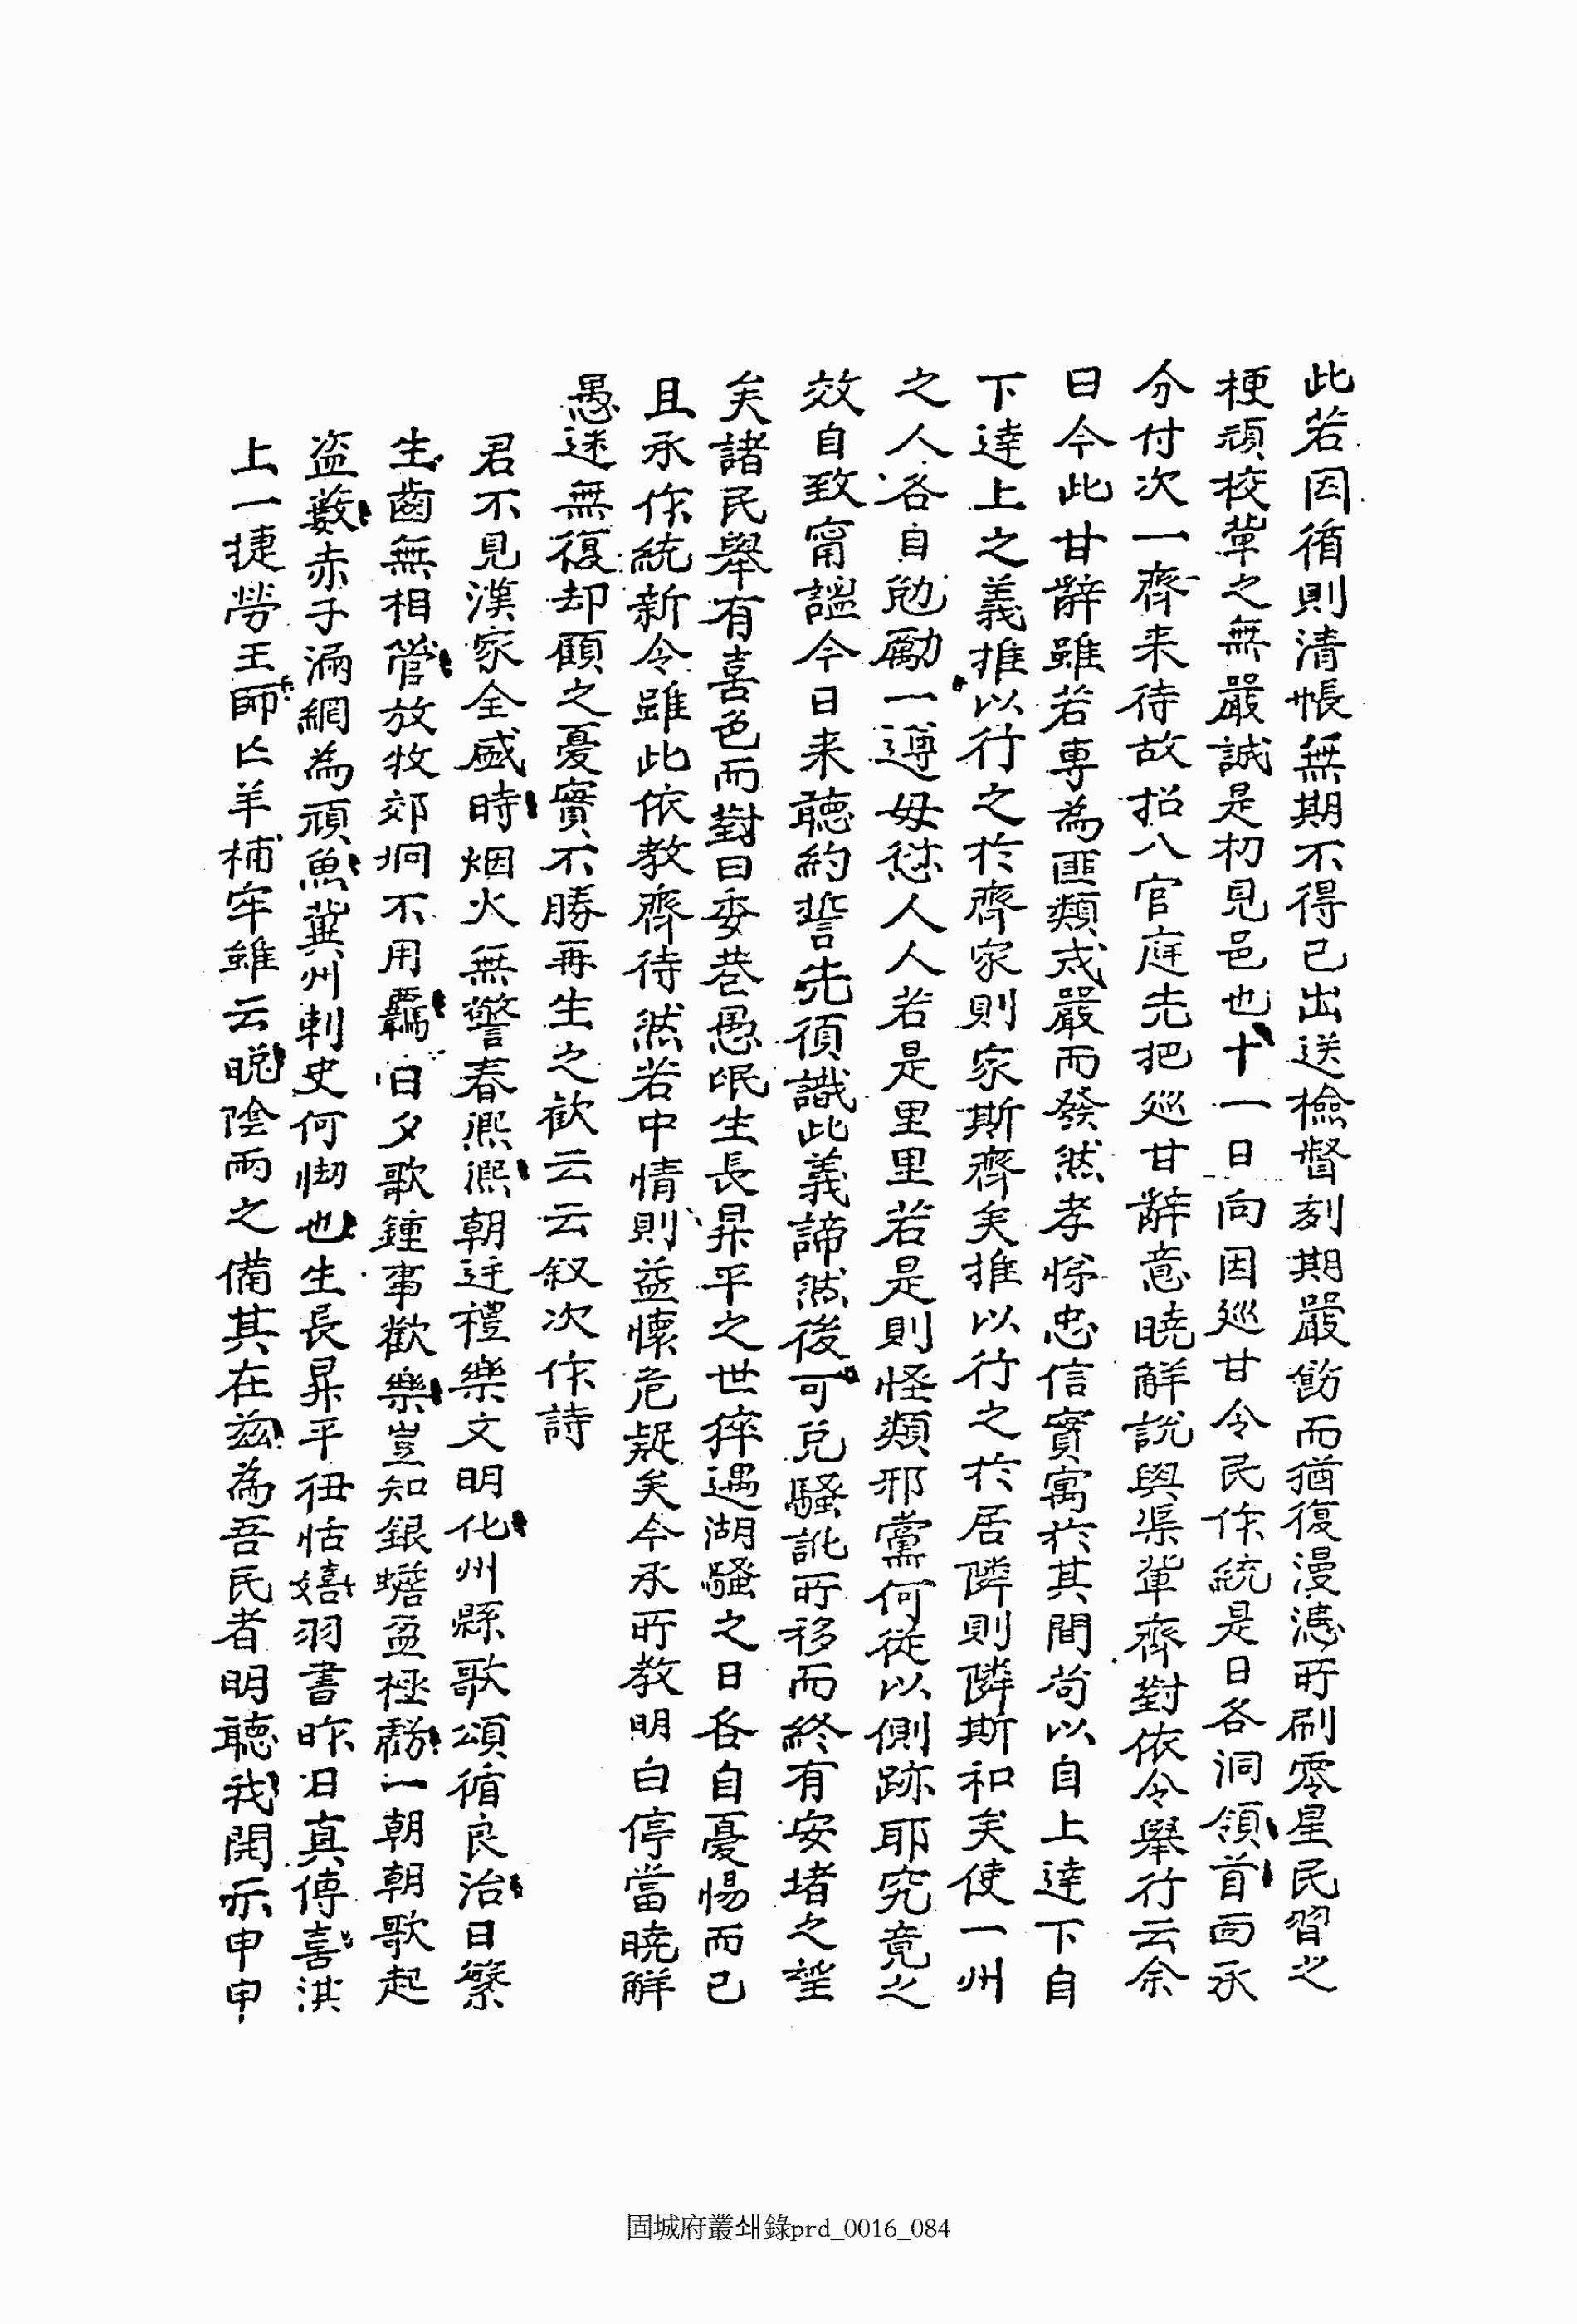 此若因循則清帳無期不得已出送檢督刻期嚴飭而猶復漫漶所刷零星民習之
梗頑校輩之無嚴誠是初見邑也十一日向因巡甘令民作統是日各洞領首面承
分付次一齊來待故招入官庭先把巡甘辭意曉解說與渠輩齊對依令舉行云余
曰今此甘辭雖若專為匪類戒嚴而發然孝悌忠信實寓於其間尚以自上達下自
下達上之義推以行之於齊家則家斯齊矣推以行之於居隣則隣斯和矣使一州
之人各自勉勵一遵毋愆人人若是里里若是則怪類邪黨何從以側跡耶究竟之
效自致甯謐今日来聽約誓先須識此義諦然後可免騷訛所移而終有安堵之望
矣諸民舉有喜色而對曰委巷愚氓生長昇平之世猝遇湖騷之日各自憂惕而已
且承作統新令雖此依教齊待然若中情則益懷危疑矣今承所教明白停當曉解
愚迷無復却顧之憂實不勝再生之歡云云叙次作詩
君不見漢家全盛時烟火無警春熙熙朝廷禮樂文明化州縣歌頌循良治日繁
生齒無相管放牧郊坰不用羈旧夕歌鍾事歡樂豈知銀蟾盈極虧一朝朝歌起
盜藪赤子滿網為頑魚冀州刺史何惻也生長昇平狃恬嬉羽書昨日真傳喜淇
上一捷勞王師亡羊補牢雖云晚陰雨之備其在茲為吾民者明聽我開示申申
固城府叢쇄錄prd_0016_084